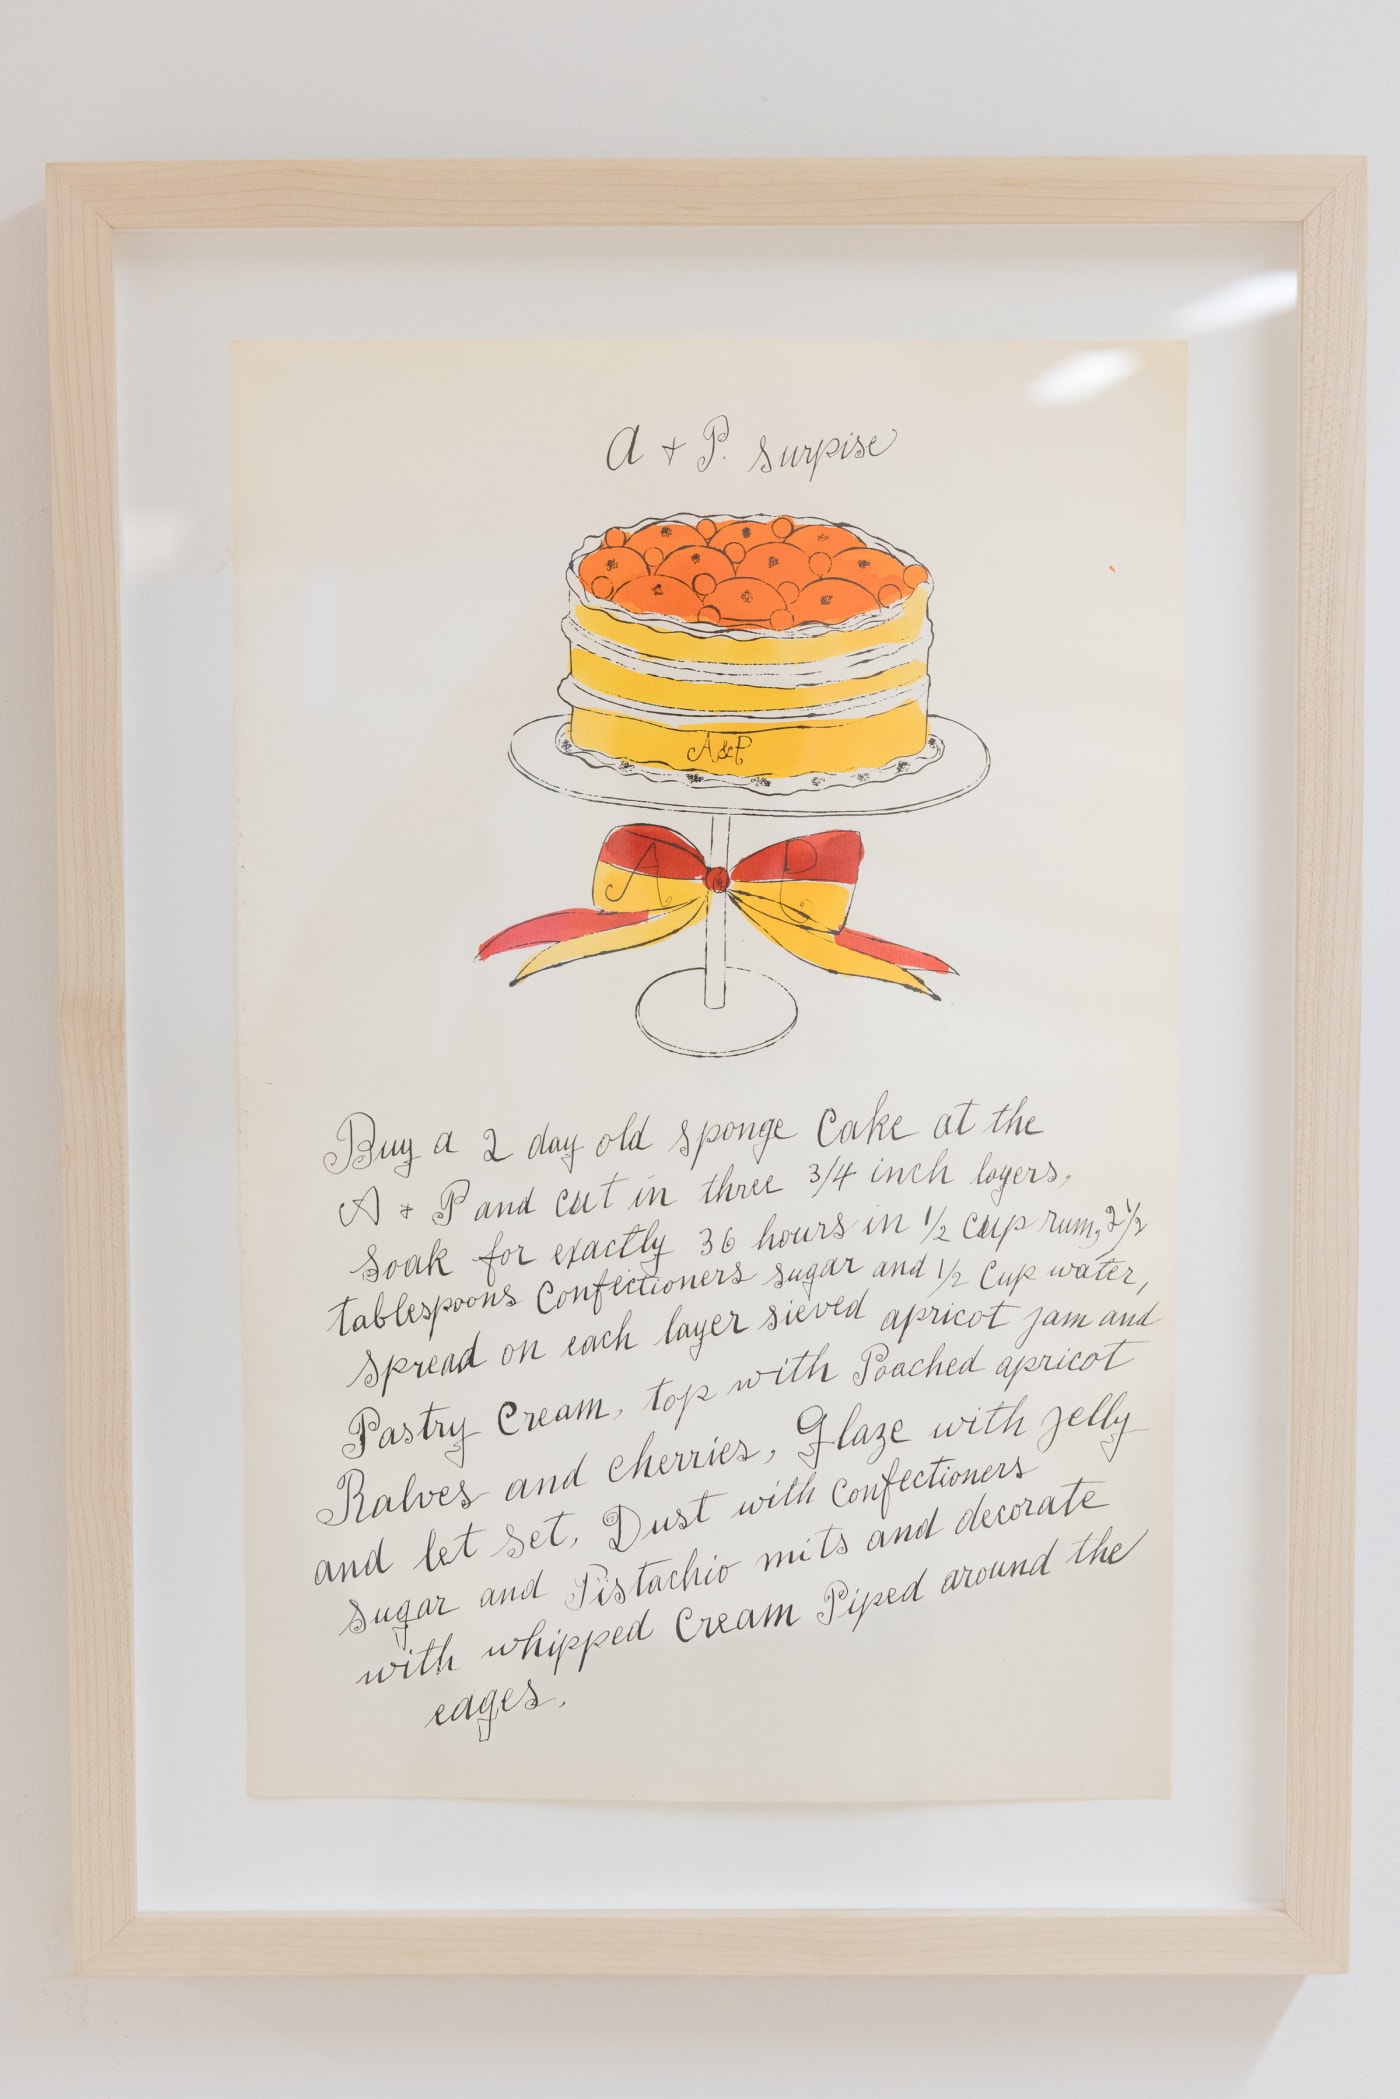 A + P. surpise
A&P
A P
Buy a 2 day old sponge Cake at the
A + P and cut in three 3/4 inch layers,
Soak for exactly 36 hours in 1/2 cup rum, 2 1/2
tablespoons Confectioners sugar and 1/2 cup water,
spread on each layer sieved apricot jam and
Pastry Cream, top with Poached apricot
Ralves and cherries, Glaze with jelly
and let set, Dust with confectioners
sugar and Pistachio mits and decorate
with whipped Cream Piped around the
edges.